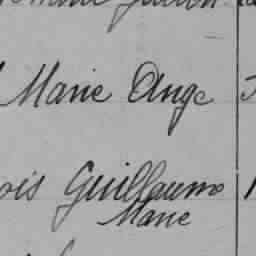 Marie Ange
ois Guillaume
Marie